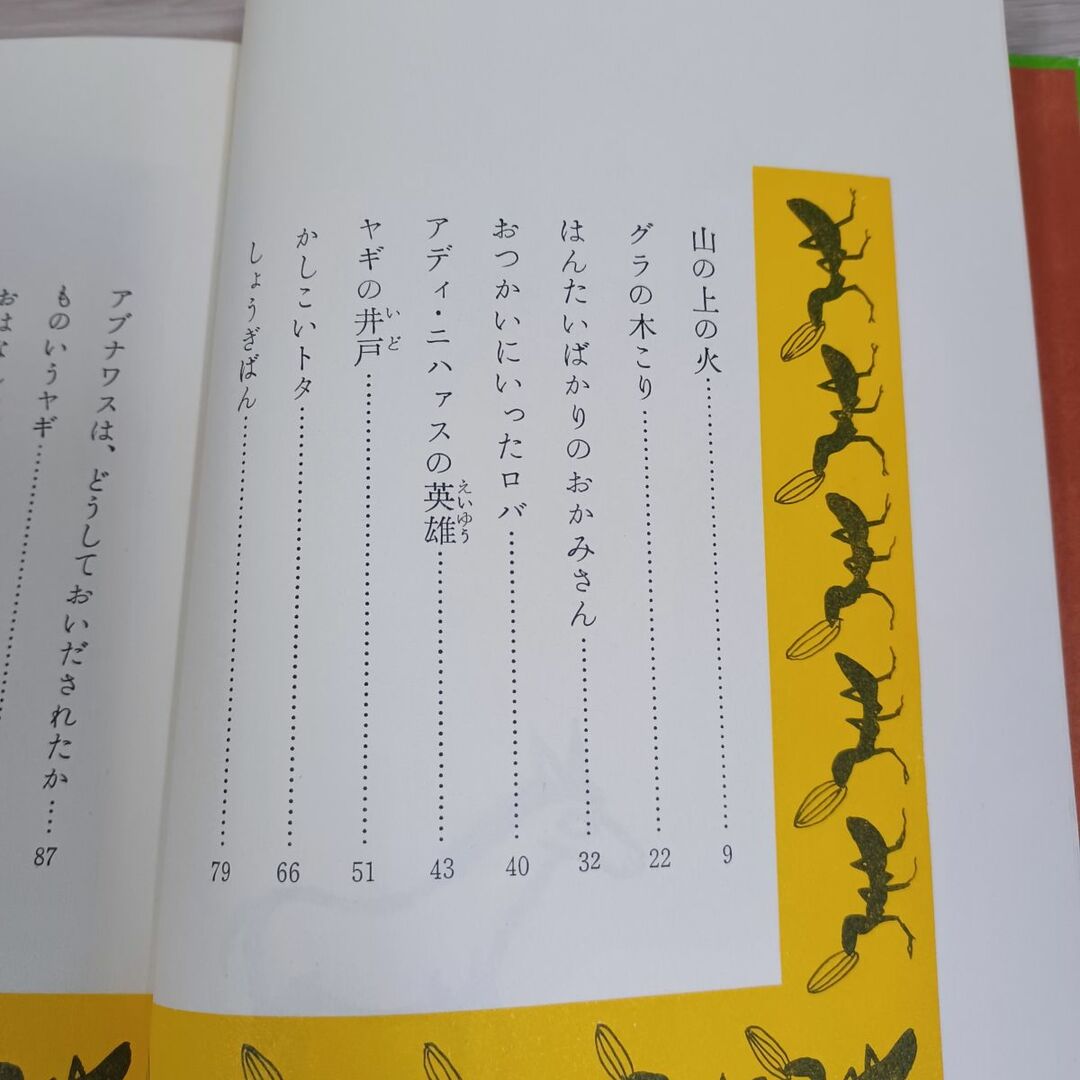 山の上の火……………………9
グラの木こり……………………22
はんたいばかりのおかみさん……………………32
おつかいにいったロバ……………………40
アディ・ニハァスの英雄……………………43
えいゆう
ヤギの井戸……………………51
いど
かしこいトタ……………………66
しょうぎばん……………………79
アブナワスは、どうしておいだされたか……87
ものいうヤギ……………………